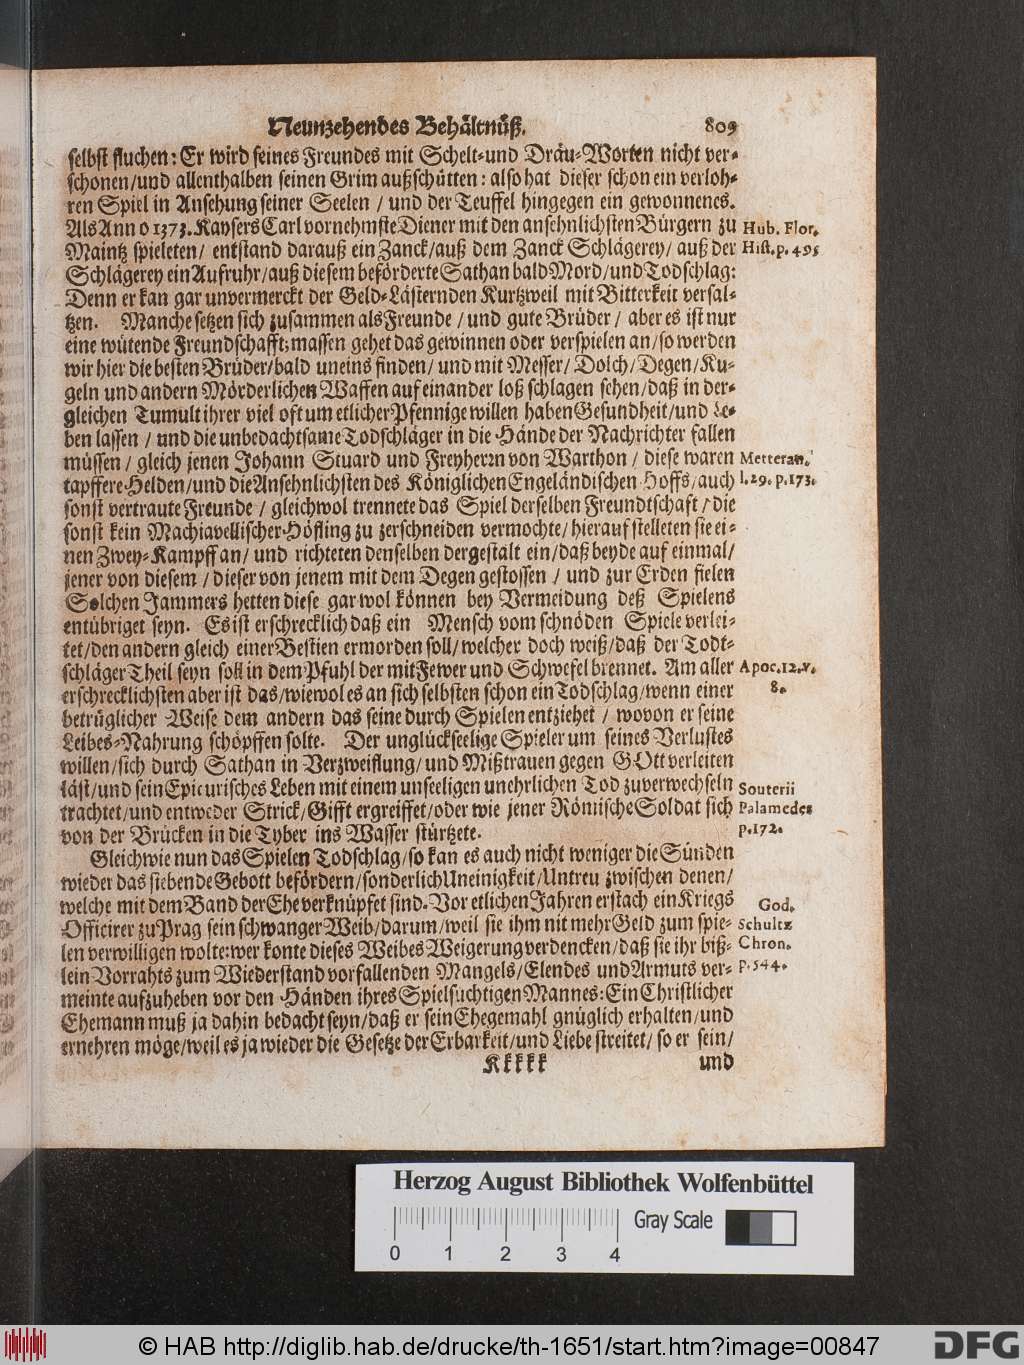 Neunzehendes Behältnüß. 809
selbst fluchen: Er wird seines Freundes mit Schelt- und Dräu-Worten nicht ver-
schonen/und allenthalben seinen Grim außschütten: also hat dieser schon ein verloh-
ren Spiel in Ansehung seiner Seelen / und der Teuffel hingegen ein gewonnenes.
Als Anno 1373. Kaysers Carl vornehmste Diener mit den ansehnlichsten Bürgern zu
Hub. Flor.
Maintz spieleten/ entstand darauß ein Zanck/auß dem Zanck Schlägerey/ auß der
Hist. p. 495
Schlägerey ein Aufruhr/auß diesem beförderte Sathan bald Mord/und Todschlag:
Denn er kan gar unvermerckt der Geld-Lästernden Kurtzweil mit Bitterkeit versal-
tzen. Manche setzen sich zusammen als Freunde / und gute Brüder / aber es ist nur
eine wütende Freundschafft; massen gehet das gewinnen oder verspielen an/so werden
wir hier die besten Brüder/bald uneins finden/ und mit Messer/ Dolch/Degen/Ku-
geln und andern Mörderlichen Waffen auf einander loß schlagen sehen/daß in der-
gleichen Tumult ihrer viel oft um etlicher Pfennige willen haben Gesundheit/und Le-
ben lassen / und die unbedachtsame Todschläger in die Hände der Nachrichter fallen
müssen / gleich jenen Johann Stuard und Freyherrn von Warthon / diese waren
Metteran.
tapffere Helden/und die Ansehnlichsten des Königlichen Engeländischen Hoffs/auch
l. 29. p. 173.
sonst vertraute Freunde / gleichwol trennete das Spiel derselben Freundtschaft / die
sonst kein Machiavellischer Höfling zu zerschneiden vermochte/hierauf stelleten sie ei-
nen Zwey-Kampff an/ und richteten denselben dergestalt ein/daß beyde auf einmal/
jener von diesem / dieser von jenem mit dem Degen gestossen / und zur Erden fielen
Solchen Jammers hetten diese gar wol können bey Vermeidung deß Spielens
entübriget seyn. Es ist erschrecklich daß ein Mensch vom schnöden Spiele verlei-
tet/den andern gleich einer Bestien ermorden soll/welcher doch weiß/daß der Todt-
schläger Theil seyn soll in dem Pfuhl der mit Fewer und Schwefel brennet. Am aller
Apoc. 12. v.
8.
erschrecklichsten aber ist das/wiewol es an sich selbsten schon ein Todschlag/wenn einer
betrüglicher Weise dem andern das seine durch Spielen entziehet / wovon er seine
Leibes-Nahrung schöpffen solte. Der unglückseelige Spieler um seines Verlustes
willen/sich durch Sathan in Verzweiflung/und Mißtrauen gegen GOtt verleiten
läst/und sein Epicurisches Leben mit einem unseeligen unehrlichen Tod zuverwechseln
Souterii
trachtet/und entweder Strick/Gifft ergreiffet/oder wie jener Römische Soldat sich
Palamedes
von der Brücken in die Tyber ins Wasser stürtzete.
p. 172.
Gleichwie nun das Spielen Todschlag/so kan es auch nicht weniger die Sünden
wieder das siebende Gebott befördern/sonderlich Uneinigkeit/Untreu zwischen denen/
welche mit dem Band der Ehe verknüpfet sind. Vor etlichen Jahren erstach ein Kriegs
God.
Officirer zu Prag sein schwanger Weib/darum/weil sie ihm nit mehr Geld zum spie-
Schultz
len verwilligen wolte: wer konte dieses Weibes Weigerung verdencken/daß sie ihr biß-
Chron.
lein Vorrahts zum Wiederstand vorfallenden Mangels/Elendes und Armuts ver-
p. 544.
meinte aufzuheben vor den Händen ihres Spielsüchtigen Mannes: Ein Christlicher
Ehemann muß ja dahin bedacht seyn/daß er sein Ehegemahl gnüglich erhalten/und
ernehren möge/weil es ja wieder die Gesetze der Erbarkeit/und Liebe streitet/ so er sein/
Kkkkk und
Herzog August Bibliothek Wolfenbüttel
Gray Scale
0 1 2 3 4
© HAB http://diglib.hab.de/drucke/th-1651/start.htm?image=00847 DFG